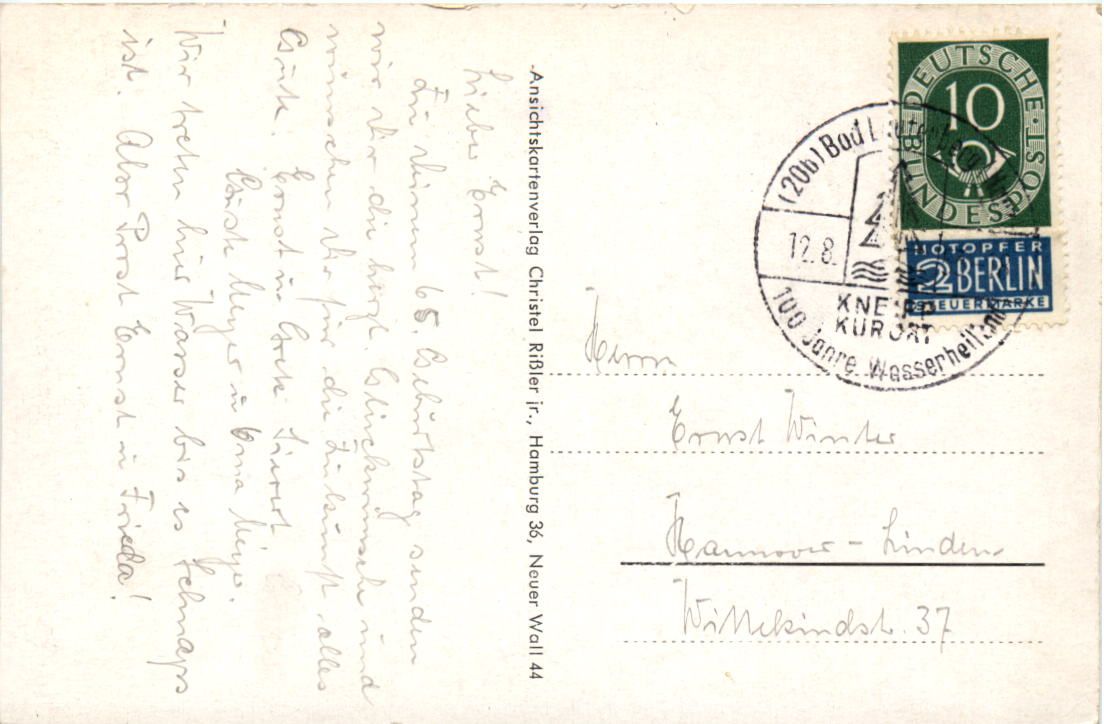 Liebe Ernst!
Zu Deinem 65. Geburtstag senden
wir Dir die herzl. Glückwünsche und
wünschen Dir für die Zukunft alles
Gute. Ernst u Grete
Gust Meyer u Erna Meyer.
Wir treten hier Wasser bis es Schnaps
ist. Aber Prost Ernst u Frieda!
Ansichtskartenverlag Christel Rißler jr., Hamburg 36, Neuer Wall 44
DEUTSCHE
BUNDESPOST
10
NOTOPFER
2 BERLIN
STEUERMARKE
(20b) Bad Lauterberg
12.8.
KNEIPP
KURORT
100 Jahre Wasserheil
Herrn
Ernst Winter
Hannover - Linden
Wittekindstr. 37